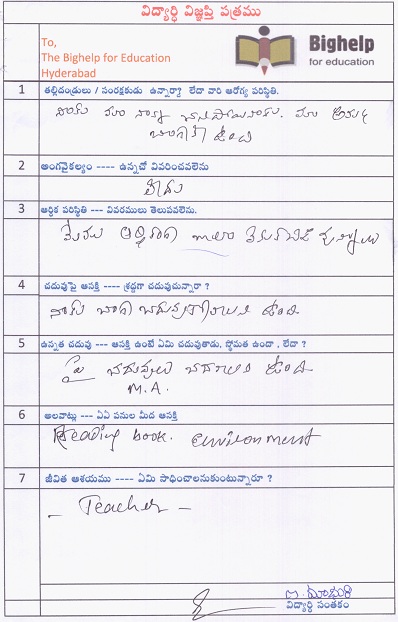 విద్యార్థి విజ్ఞప్తి పత్రము
To,
The Bighelp for Education
Hyderabad
Bighelp
for education
1 తల్లిదండ్రులు / సంరక్షకుడు ఉన్నారా? లేదా వారి ఆరోగ్య పరిస్థితి.
మా నాన్న చనిపోయినాడు. మా అమ్మ
బాగానే ఉంది
2 అంగవైకల్యం ---- ఉన్నచో వివరించవలెను
లేదు
3 ఆర్థిక పరిస్థితి --- వివరములు తెలుపవలెను.
మేము ఆర్థికంగా చాలా వెనుకబడి ఉన్నాము
4 చదువుపై ఆసక్తి ---- శ్రద్ధగా చదువుచున్నారా ?
నాకు బాగా చదువుకోవాలని ఉంది.
5 ఉన్నత చదువు --- ఆసక్తి ఉంటే ఏమి చదువుతాడు, స్థోమత ఉందా , లేదా ?
పై చదువులు చదవాలని ఉంది
M.A.
6 అలవాట్లు --- ఏఏ పనుల మీద ఆసక్తి
Reading book. environment
7 జీవిత ఆశయము ---- ఏమి సాధించాలనుకుంటున్నారూ ?
- Teacher -
విద్యార్థి సంతకం